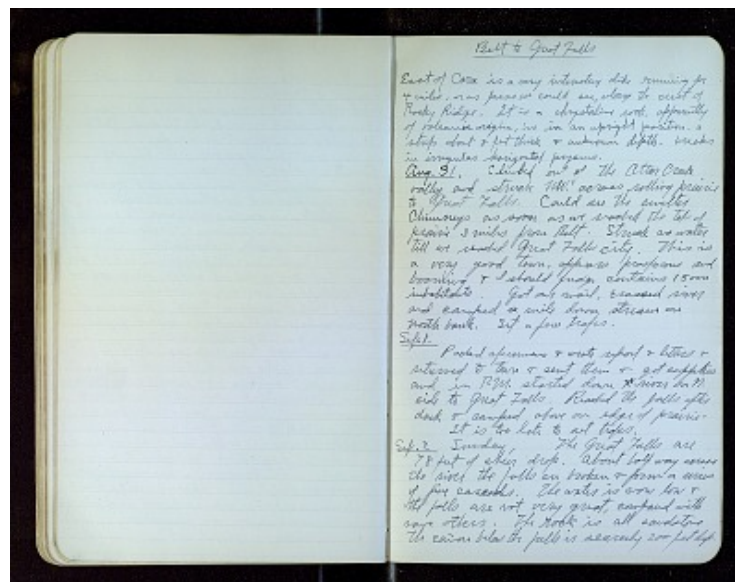 Belt to Great Falls
East of Cora is a very interesting dike running for
4 miles, or as far as we could see, along the crest of
Rocky Ridge. It is a chrystaline rock, apparently
of volcanic origin, in an upright position, a
strip about 4 feet thick & unknown depth. breaks
in irregular horizontal prisms.
Aug. 31. Climbed out of the Otter Creek
valley and struck NW. across rolling prairie
to Great Falls. Could see the smelter
Chimneys as soon as we reached the top of
prairie 3 miles from Belt. Struck no water
till we reached Great Falls city. This is
a very good town, appears prosperous and
booming & I should judge contains 15000
inhabitants. Got our mail, crossed river
and camped a mile down stream on
north bank. Set a few traps.
Sept. 1.
Packed specimens & wrote report & letters &
returned to town & sent them & got supplies
and in P.M. started down river on N.
side to Great Falls. Reached the falls after
dark & camped above on edge of prairie.
It is too late to set traps.
Sept. 2. Sunday, The Great Falls are
78 feet of sheer drop. About half way across
the river the falls are broken & form a series
of fine cascades. The water is now low &
the falls are not very great, compared with
some others. The rock is all sandstone
the canon below the falls is scarcely 200 feet deep.